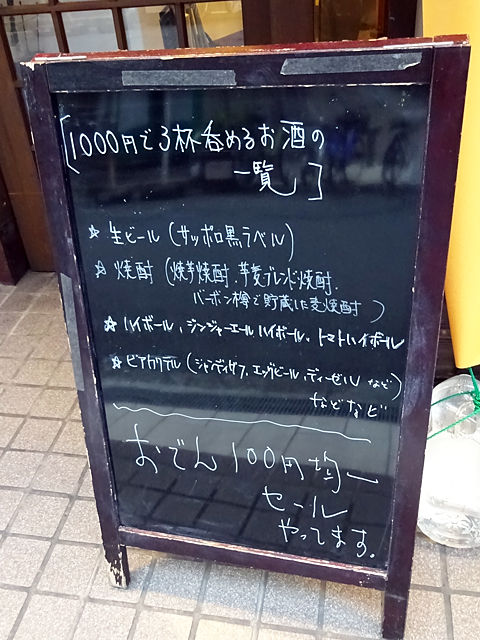 [1000円で3杯呑めるお酒の
一覧]
☆生ビール(サッポロ黒ラベル)
☆焼酎(焼芋焼酎、芋麦ブレンド焼酎、
バーボン樽で貯蔵した麦焼酎)
☆ハイボール、ジンジャーエールハイボール、トマトハイボール
☆ビアカクテル(シャンディガフ、エッグビール、ディーゼル など)
などなど
おでん100円均一
セール
やってます。